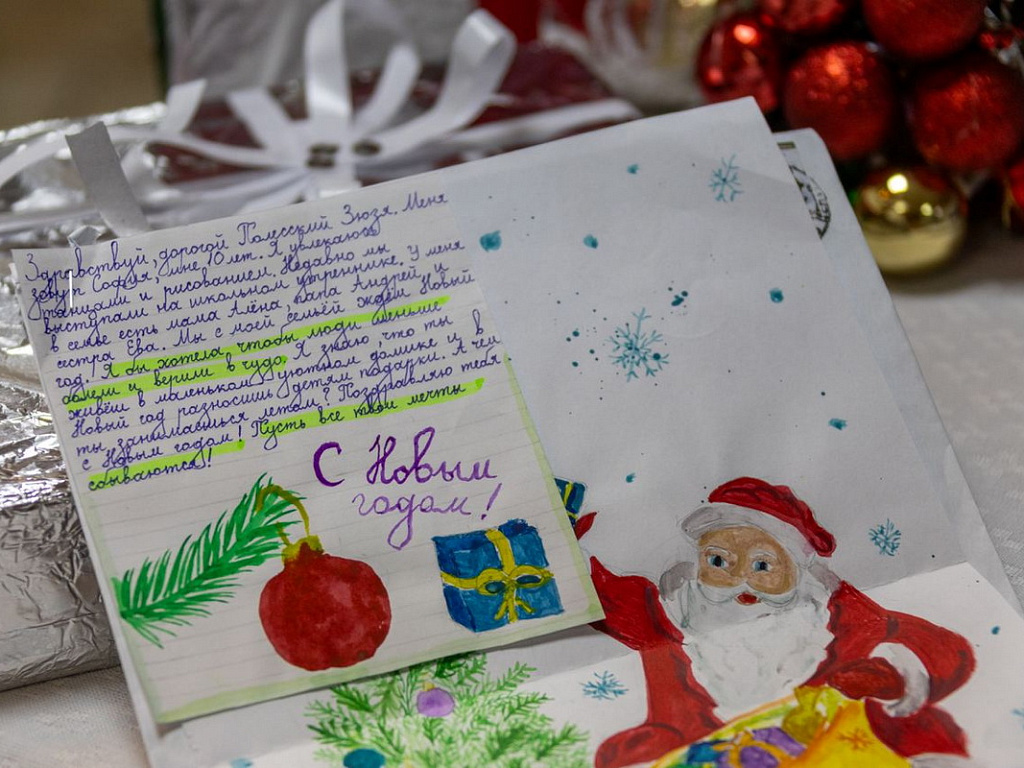 Здравствуй, дорогой Полесский Зюзя. Меня
зовут София, мне 10 лет. Я увлекаюсь
танцами и рисованием. Недавно мы
выступали на школьном утреннике. У меня
в семье есть мама Алёна, папа Андрей и
сестра Ева. Мы с моей семьёй ждём Новый
год. Я бы хотела чтобы люди меньше
болели и верили в чудо. Я знаю, что ты
живёш в маленьком уютном домике и в
Новый год разносишь детям подарки. А чем
ты занимаешься летом? Поздравляю тебя
с Новым годом! Пусть все твои мечты
сбываются!
С Новым
годом!